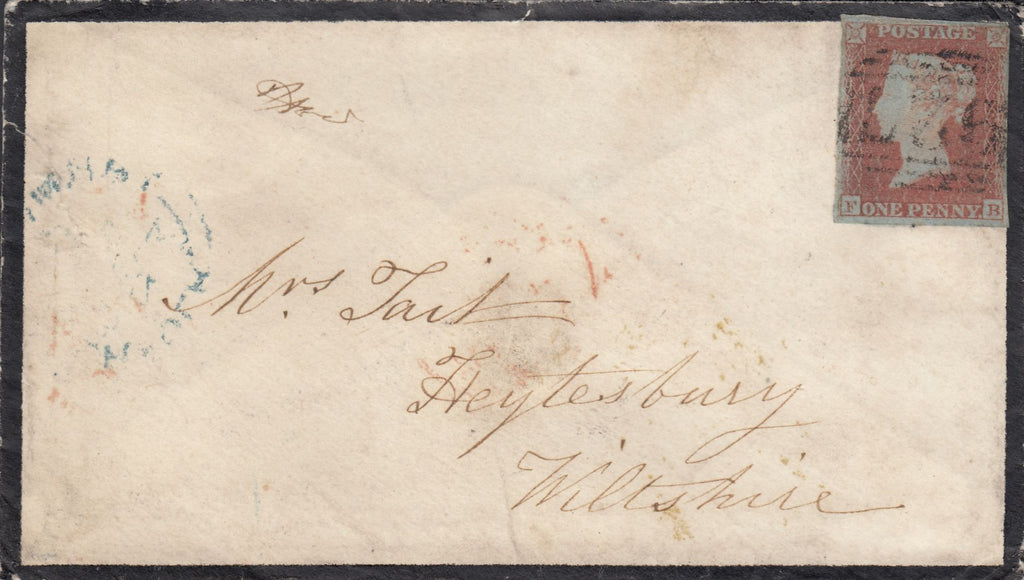 POSTAGE
F ONE PENNY B
Mrs. Tait
Heytesbury
Wiltshire